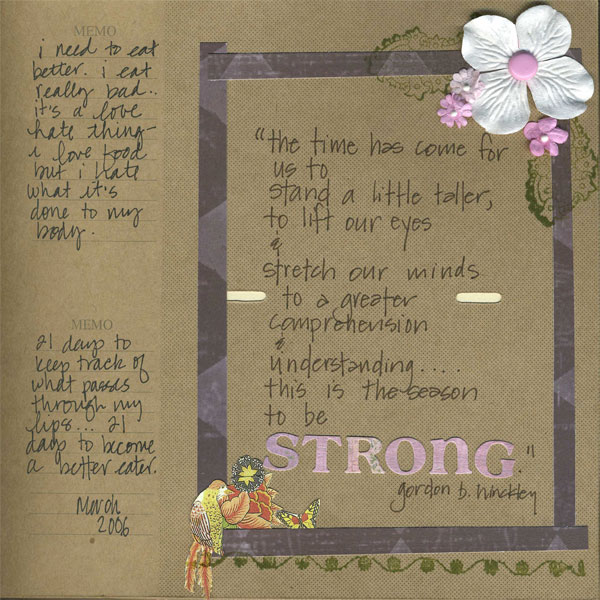 MEMO
i need to eat
better. i eat
really bad..
it's a love
hate thing-
i love food
but i hate
what it's
done to my
body.
MEMO
21 days to
keep track of
what passes
through my
lips... 21
days to become
a better eater.
March
2006
"the time has come for
us to
stand a little taller,
to lift our eyes
&
stretch our minds
to a greater
comprehension
&
understanding....
this is the season
to be
STRONG."
gordon b. hinckley